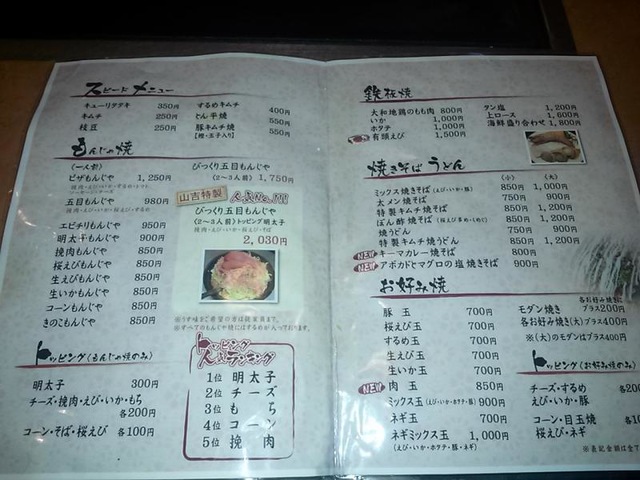 スピードメニュー
キューリタタキ 350円
キムチ 250円
枝豆 250円
するめキムチ 400円
とん平焼 550円
豚キムチ焼 550円
もんじゃ焼
(一人前)
ピザもんじゃ 1,250円
五目もんじゃ 980円
挽肉・えび・いか・もち
エビチリもんじゃ 950円
明太子もんじゃ 900円
挽肉もんじゃ 850円
桜えびもんじゃ 850円
生えびもんじゃ 850円
生いかもんじゃ 850円
コーンもんじゃ 850円
きのこもんじゃ 850円
びっくり五目もんじゃ
(2〜3人前) 1,750円
山吉特製 人気No.1!!
びっくり五目もんじゃ
(2〜3人前)トッピング明太子
挽肉・えび・いか・桜えび・そば
2,030円
※うす味をご希望の方は従業員まで。
※すべてのもんじゃ焼にはするめが入っております。
トッピング(もんじゃ焼のみ)
明太子 300円
チーズ・挽肉・えび・いか・もち
各200円
コーン・そば・桜えび 各100円
トッピング
人気ランキング
1位 明太子
2位 チーズ
3位 もち
4位 コーン
5位 挽肉
鉄板焼
大和地鶏のもも肉 800円
いか 1,000円
ホタテ 1,000円
有頭えび 1,500円
タン塩 1,200円
上ロース 1,600円
海鮮盛り合わせ 1,800円
焼きそば うどん
(小) (大)
ミックス焼きそば(えび・いか・豚) 850円 1,000円
太メン焼そば 750円 900円
特製キムチ焼そば 850円 1,200円
ぽん酢焼そば 850円 1,200円
焼うどん 750円 900円
特製キムチ焼うどん 850円 1,200円
NEW キーマカレー焼そば 800円
NEW アボカドとマグロの塩焼きそば 900円
お好み焼
豚玉 700円
桜えび玉 700円
するめ玉 700円
生えび玉 700円
生いか玉 700円
NEW 肉玉 850円
ミックス玉(えび・いか・ホタテ・豚) 900円
ネギ玉 700円
ネギミックス玉 1,000円
(えび・いか・ホタテ・豚・ネギ)
各お好み焼きに
モダン焼き プラス200円
各お好み焼き(大)プラス400円
※(大)のモダンはプラス400円
トッピング(お好み焼のみ)
チーズ・するめ 200
えび・いか・豚
コーン・目玉焼 100
桜えび・ネギ